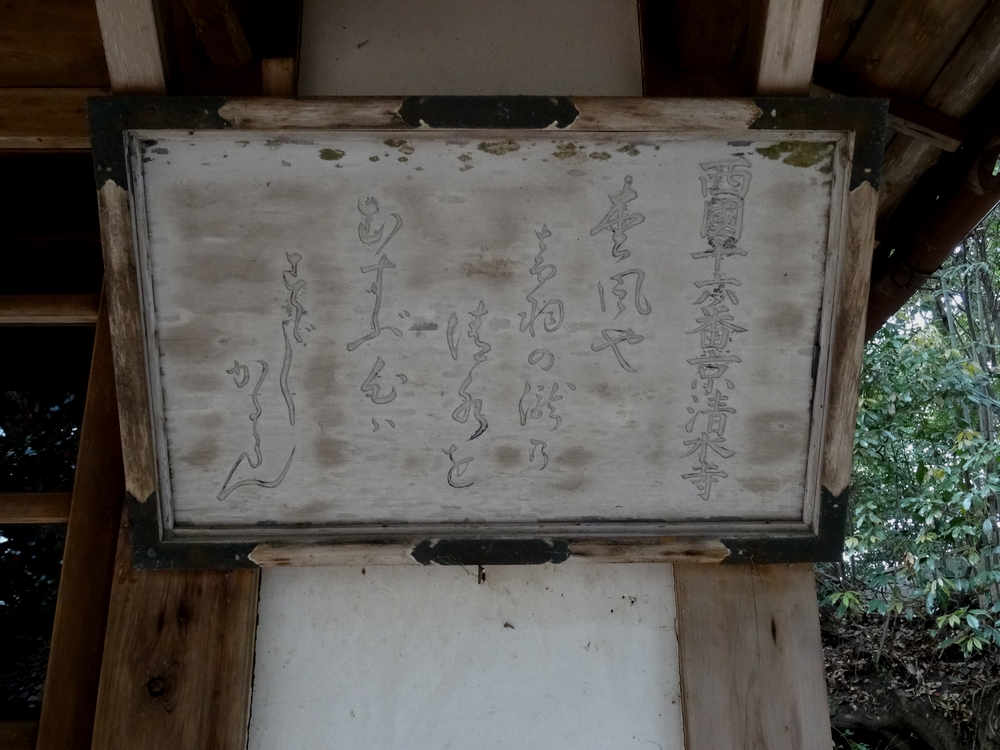 西國十六番京清水寺
枩風や
音羽の瀧乃
清水を
むすぶ心ハ
すゞし
かるらん